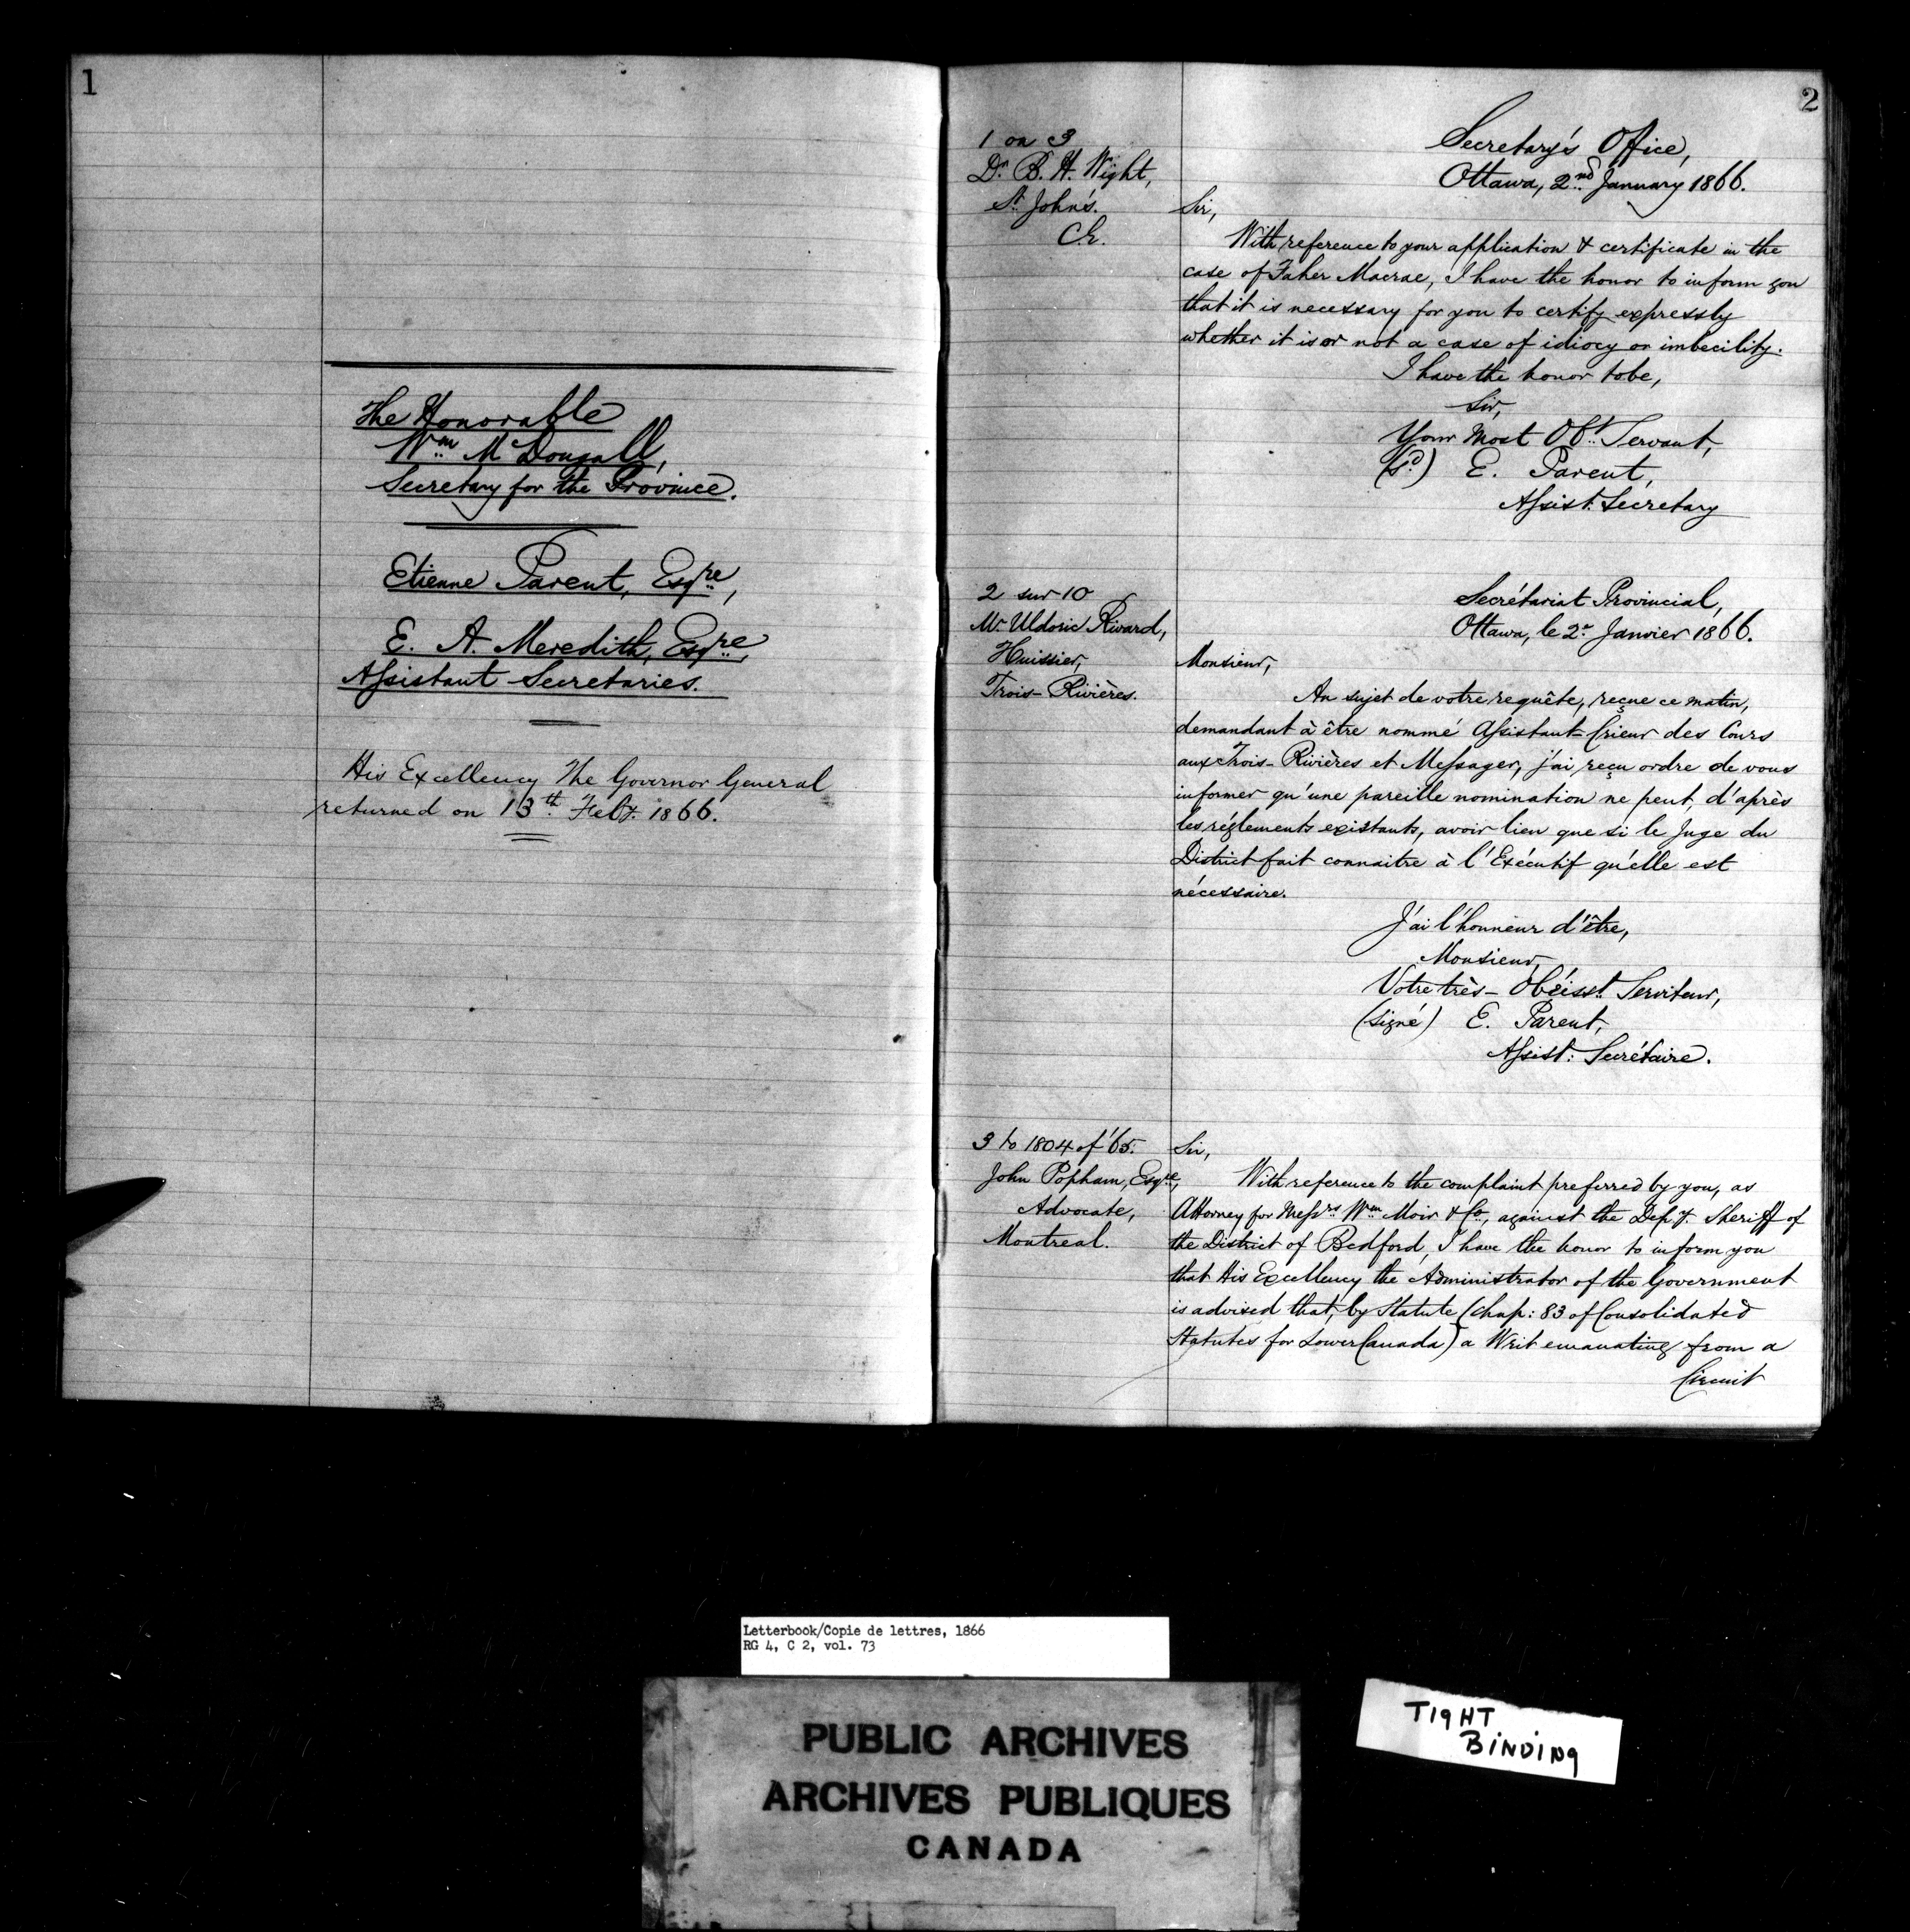 1
The Honorable
Wm McDougall,
Secretary for the Province.
Etienne Parent, Esqre,
E. A. Meredith, Esqre,
Assistant Secretaries.
His Excellency The Governor General
returned on 13th Feby. 1866.
2
1 on 3
Dr B. H. Wight,
St John's.
C.E.
Secretary's Office,
Ottawa, 2nd January 1866.
Sir,
With reference to your application & certificate in the
case of Faher Macrae, I have the honor to inform you
that it is necessary for you to certify expressly
whether it is or not a case of idiocy or imbecility.
I have the honor to be,
Sir,
Your Most Obt Servant,
(sd) E. Parent,
Assist. Secretary
2 sur 10
Mr Uldoric Rivard,
Huissier,
Trois-Rivières.
Secrétariat Provincial,
Ottawa, le 2r Janvier 1866.
Monsieur,
Au sujet de votre requête, reçue ce matin,
demandant à être nommé Assistant-Crieur des Cours
aux Trois-Rivières et Messager, j'ai reçu ordre de vous
informer qu'une pareille nomination ne peut, d'après
les réglements existants, avoir lieu que si le Juge du
District fait connaitre à l'Exécutif qu'elle est
nécessaire.
J'ai l'honneur d'être,
Monsieur,
Votre très-Obéisst. Serviteur,
(signé) E. Parent,
Assist: Secrétaire.
3 to 1804 of '65.
John Popham, Esqre,
Advocate,
Montreal.
Sir,
With reference to the complaint preferred by you, as
Attorney for Messrs Wm Moir & Co, against the Depy. Sheriff of
the District of Bedford, I have the honor to inform you
that His Excellency the Administrator of the Government
is advised that, by Statute (Chap: 83 of Consolidated
Statutes for Lower Canada) a Writ emanating from a
Circuit
Letterbook/Copie de lettres, 1866
RG 4, C 2, vol. 73
PUBLIC ARCHIVES
ARCHIVES PUBLIQUES
CANADA
TIGHT
BINDING